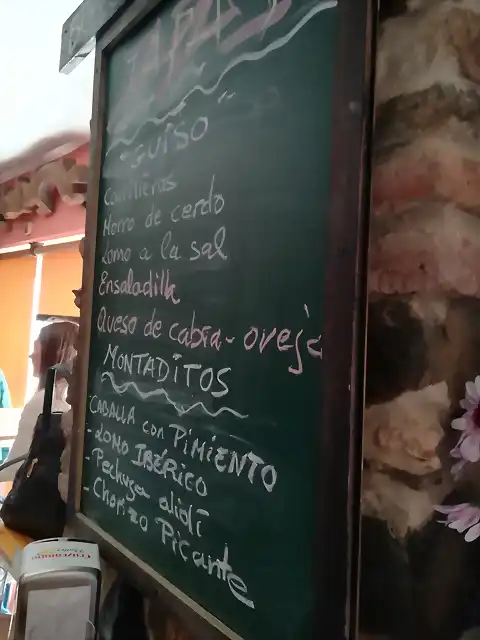 TAPAS
"GUISO"
Carrilleras
Morro de cerdo
Lomo a la sal
Ensaladilla
Queso de cabra - oveja
MONTADITOS
CABALLA con PIMIENTO
- LOMO IBÉRICO
- Pechuga alioli
- Chorizo Picante